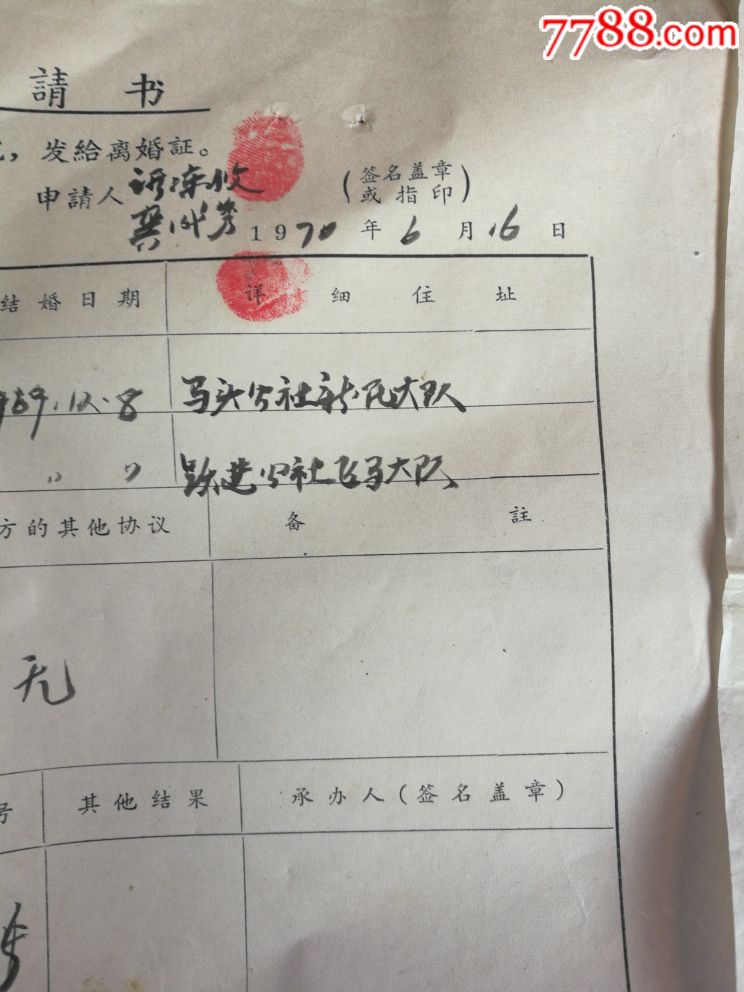 7788.com
請书
发给离婚証。
申請人
(签名盖章
或指印)
1970年6月16日
结婚日期
详细住址
1969.12.8
马头公社新民大队
〃 〃
跃进公社飞马大队
方的其他协议
备註
无
号
其他结果
承办人(签名盖章)